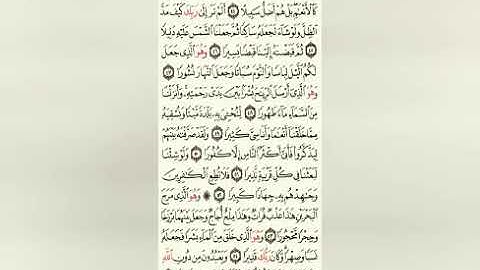 كَٱلْأَنْعَٰمِ بَلْ هُمْ أَضَلُّ سَبِيلًا ٤٤ أَلَمْ تَرَ إِلَىٰ رَبِّكَ كَيْفَ مَدَّ
ٱلظِّلَّ وَلَوْ شَآءَ لَجَعَلَهُۥ سَاكِنًا ثُمَّ جَعَلْنَا ٱلشَّمْسَ عَلَيْهِ دَلِيلًا
٤٥ ثُمَّ قَبَضْنَٰهُ إِلَيْنَا قَبْضًا يَسِيرًا ٤٦ وَهُوَ ٱلَّذِى جَعَلَ
لَكُمُ ٱلَّيْلَ لِبَاسًا وَٱلنَّوْمَ سُبَاتًا وَجَعَلَ ٱلنَّهَارَ نُشُورًا ٤٧
وَهُوَ ٱلَّذِىٓ أَرْسَلَ ٱلرِّيَٰحَ بُشْرًۢا بَيْنَ يَدَىْ رَحْمَتِهِۦ وَأَنزَلْنَا
مِنَ ٱلسَّمَآءِ مَآءً طَهُورًا ٤٨ لِّنُحْۦِىَ بِهِۦ بَلْدَةً مَّيْتًا وَنُسْقِيَهُۥ
مِمَّا خَلَقْنَآ أَنْعَٰمًا وَأَنَاسِىَّ كَثِيرًا ٤٩ وَلَقَدْ صَرَّفْنَٰهُ بَيْنَهُمْ
لِيَذَّكَّرُوا۟ فَأَبَىٰٓ أَكْثَرُ ٱلنَّاسِ إِلَّا كُفُورًا ٥٠ وَلَوْ شِئْنَا
لَبَعَثْنَا فِى كُلِّ قَرْيَةٍ نَّذِيرًا ٥١ فَلَا تُطِعِ ٱلْكَٰفِرِينَ
وَجَٰهِدْهُم بِهِۦ جِهَادًا كَبِيرًا ٥٢ ۞ وَهُوَ ٱلَّذِى مَرَجَ
ٱلْبَحْرَيْنِ هَٰذَا عَذْبٌ فُرَاتٌ وَهَٰذَا مِلْحٌ أُجَاجٌ وَجَعَلَ بَيْنَهُمَا بَرْزَخًا
وَحِجْرًا مَّحْجُورًا ٥٣ وَهُوَ ٱلَّذِى خَلَقَ مِنَ ٱلْمَآءِ بَشَرًا فَجَعَلَهُۥ
نَسَبًا وَصِهْرًا وَكَانَ رَبُّكَ قَدِيرًا ٥٤ وَيَعْبُدُونَ مِن دُونِ ٱللَّهِ